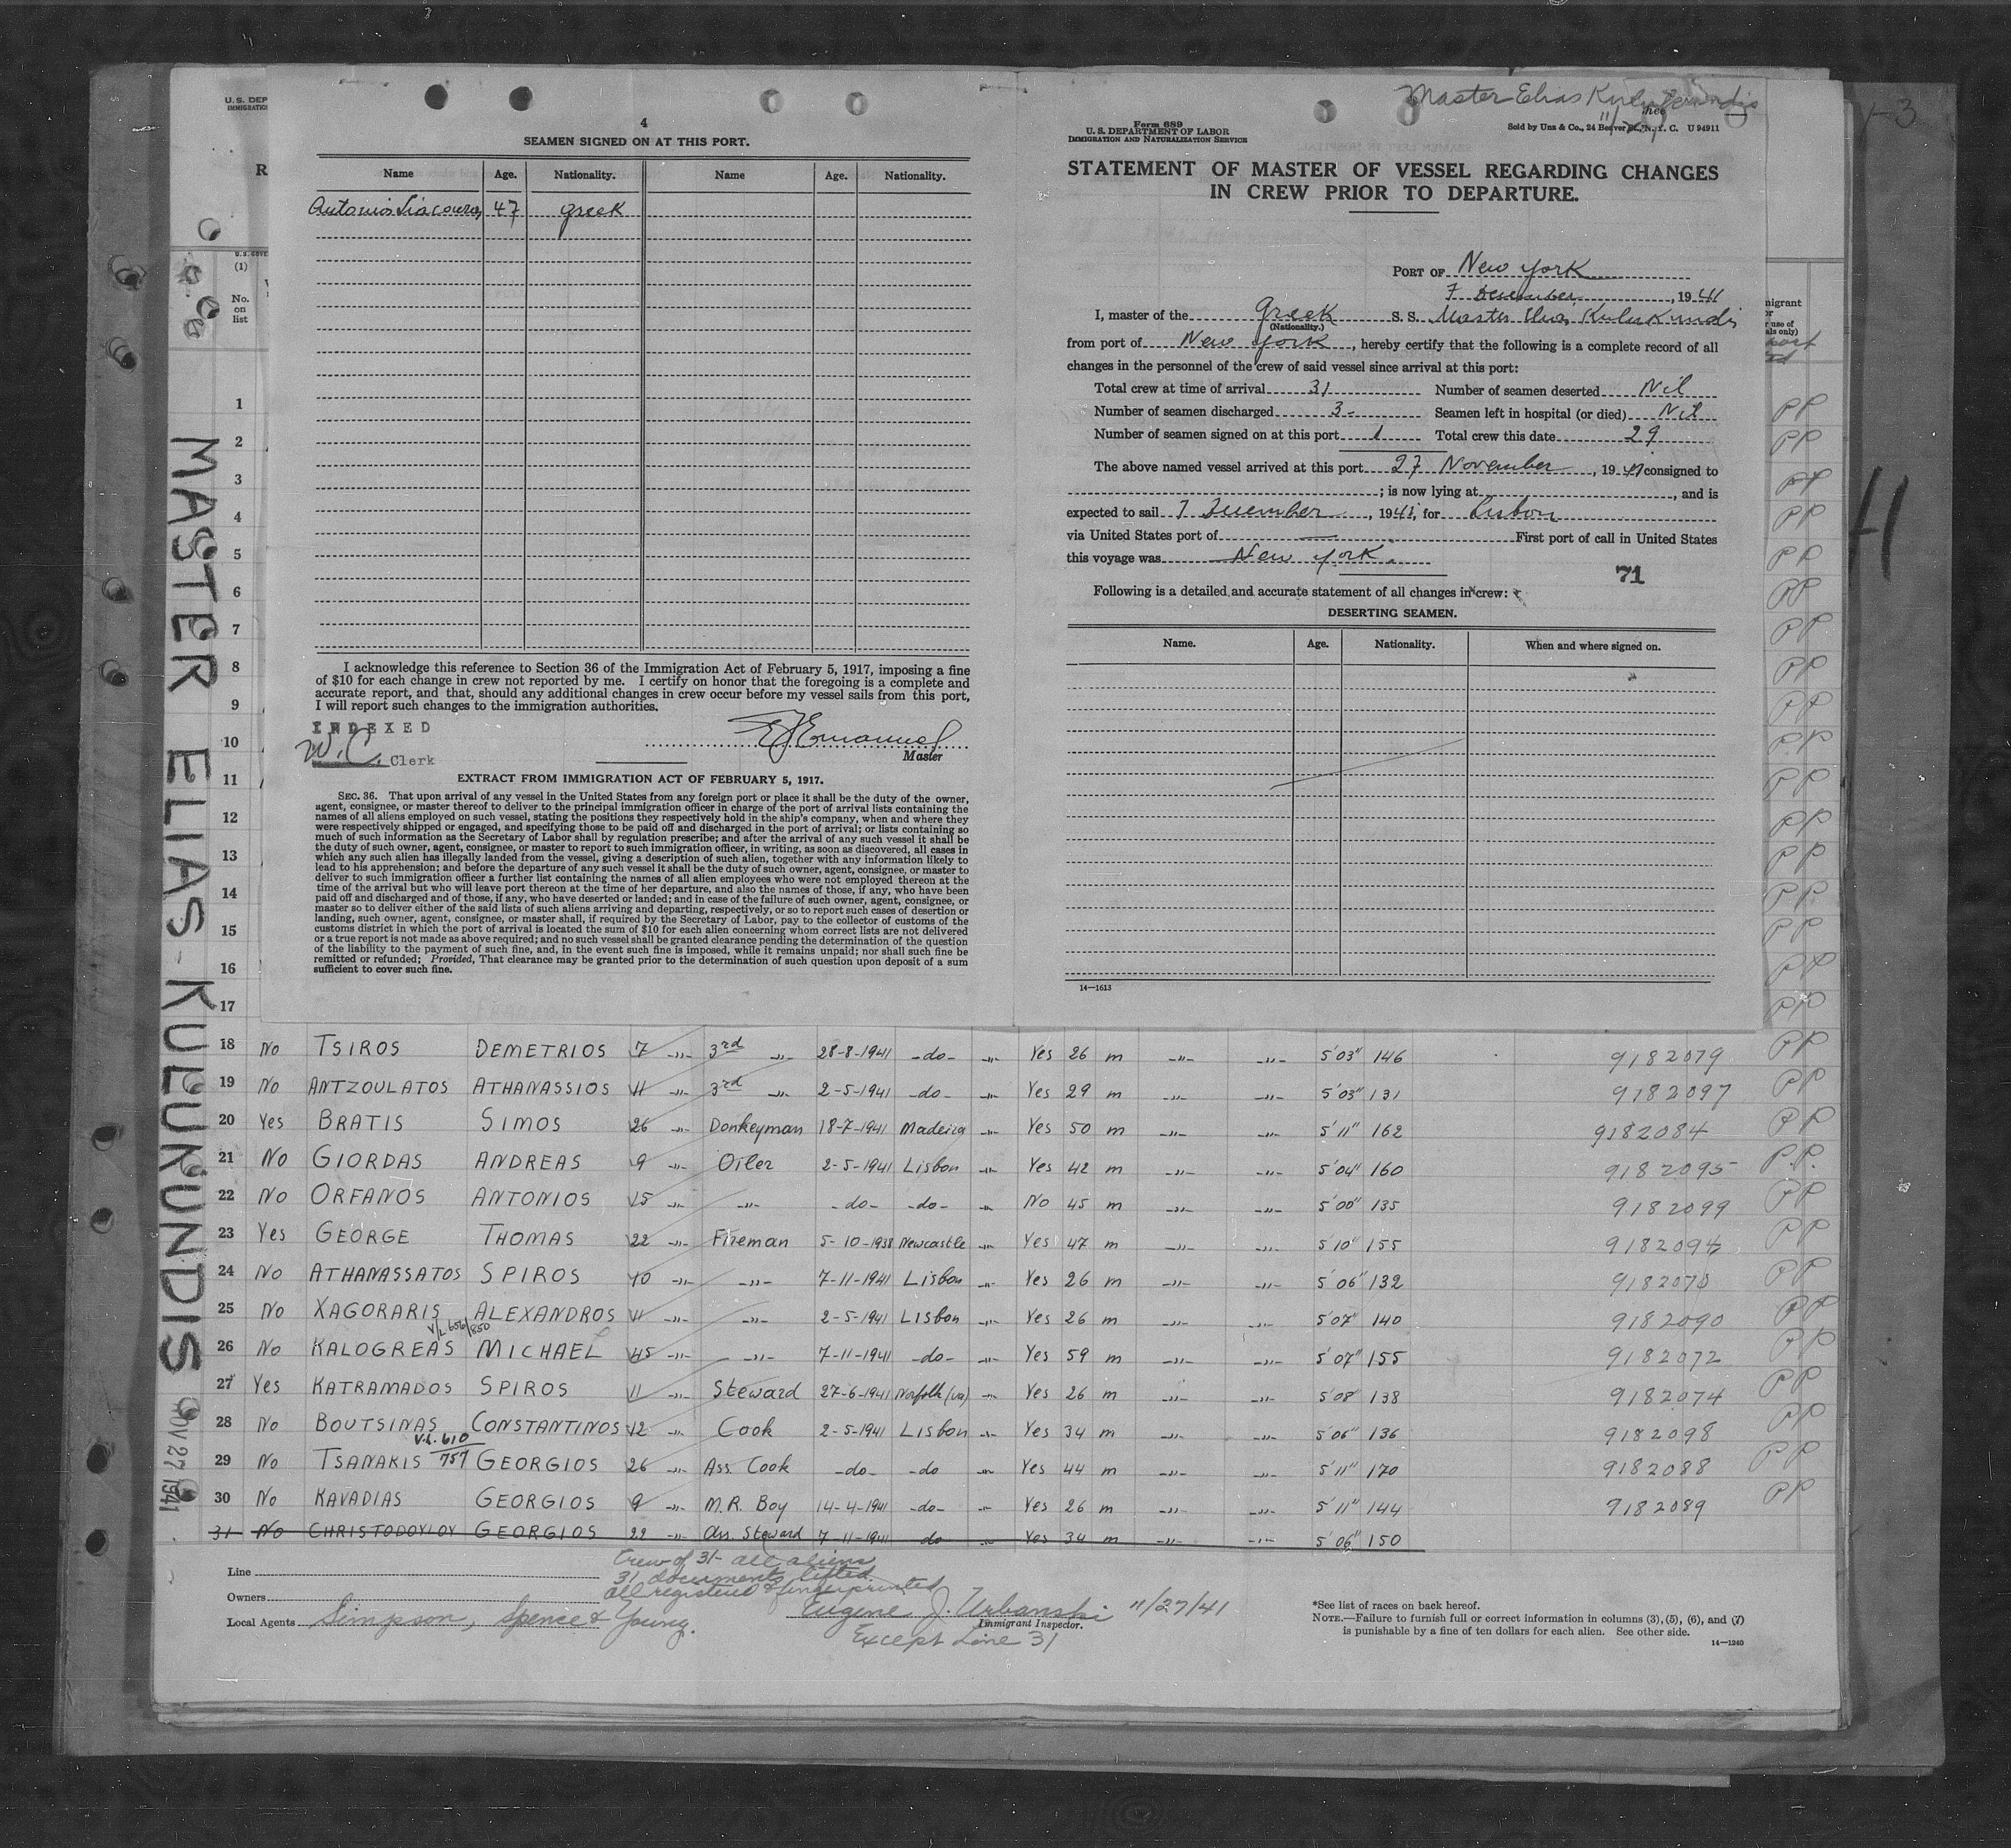 U.S. DEP
IMMIGRATIC
R
U.S. GOVE
(1)
No.
on
list
MASTER ELIAS-KULUKUNDIS NOV 27 1941
4
SEAMEN SIGNED ON AT THIS PORT.
Name Age. Nationality. Name Age. Nationality.
Antonios Liacouras 47 greek
I acknowledge this reference to Section 36 of the Immigration Act of February 5, 1917, imposing a fine
of $10 for each change in crew not reported by me. I certify on honor that the foregoing is a complete and
accurate report, and that, should any additional changes in crew occur before my vessel sails from this port,
I will report such changes to the immigration authorities.
INDEXED
W.C. Clerk
Emanuel
Master
EXTRACT FROM IMMIGRATION ACT OF FEBRUARY 5, 1917.
SEC. 36. That upon arrival of any vessel in the United States from any foreign port or place it shall be the duty of the owner,
agent, consignee, or master thereof to deliver to the principal immigration officer in charge of the port of arrival lists containing the
names of all aliens employed on such vessel, stating the positions they respectively hold in the ship's company, when and where they
were respectively shipped or engaged, and specifying those to be paid off and discharged in the port of arrival; or lists containing so
much of such information as the Secretary of Labor shall by regulation prescribe; and after the arrival of any such vessel it shall be
the duty of such owner, agent, consignee, or master to report to such immigration officer, in writing, as soon as discovered, all cases in
which any such alien has illegally landed from the vessel, giving a description of such alien, together with any information likely to
lead to his apprehension; and before the departure of any such vessel it shall be the duty of such owner, agent, consignee, or master to
deliver to such immigration officer a further list containing the names of all alien employees who were not employed thereon at the
time of the arrival but who will leave port thereon at the time of her departure, and also the names of those, if any, who have been
paid off and discharged and of those, if any, who have deserted or landed; and in case of the failure of such owner, agent, consignee, or
master so to deliver either of the said lists of such aliens arriving and departing, respectively, or so to report such cases of desertion or
landing, such owner, agent, consignee, or master shall, if required by the Secretary of Labor, pay to the collector of customs of the
customs district in which the port of arrival is located the sum of $10 for each alien concerning whom correct lists are not delivered
or a true report is not made as above required; and no such vessel shall be granted clearance pending the determination of the question
of the liability to the payment of such fine, and, in the event such fine is imposed, while it remains unpaid; nor shall such fine be
remitted or refunded; Provided, That clearance may be granted prior to the determination of such question upon deposit of a sum
sufficient to cover such fine.
Master Elias Kulukundis
Form 689
U. S. DEPARTMENT OF LABOR
IMMIGRATION AND NATURALIZATION SERVICE
Sold by Unz & Co., 24 Beaver St., N. Y. C. U 94911
STATEMENT OF MASTER OF VESSEL REGARDING CHANGES
IN CREW PRIOR TO DEPARTURE.
PORT OF New York
7 December, 1941
I, master of the Greek S. S. Master Elias Kulukundis
(Nationality.)
from port of New York, hereby certify that the following is a complete record of all
changes in the personnel of the crew of said vessel since arrival at this port:
Total crew at time of arrival 31 Number of seamen deserted Nil
Number of seamen discharged 3- Seamen left in hospital (or died) Nil
Number of seamen signed on at this port 1 Total crew this date 29
The above named vessel arrived at this port 27 November, 1941 consigned to
; is now lying at , and is
expected to sail 7 December, 1941, for Lisbon
via United States port of — First port of call in United States
this voyage was New York.
71
Following is a detailed and accurate statement of all changes in crew:
DESERTING SEAMEN.
Name. Age. Nationality. When and where signed on.
14—1613
1 PP
2 PP
3 PP
4 PP
5 PP
6 PP
7 PP
8 PP
9 PP
10 PP
11 PP
12 PP
13 PP
14 PP
15 PP
16 PP
17 PP
18 No TSIROS DEMETRIOS 7 -"- 3rd -"- 28-8-1941 -do- -"- Yes 26 m -"- -"- 5'03" 146 9182079 PP
19 No ANTZOULATOS ATHANASSIOS 11 -"- 3rd -"- 2-5-1941 -do- -"- Yes 29 m -"- -"- 5'03" 131 9182097 PP
20 Yes BRATIS SIMOS 26 -"- Donkeyman 18-7-1941 Madeira -"- Yes 50 m -"- -"- 5'11" 162 9182084 PP
21 No GIORDAS ANDREAS 9 -"- Oiler 2-5-1941 Lisbon -"- Yes 42 m -"- -"- 5'04" 160 9182095 P.P.
22 No ORFANOS ANTONIOS 15 -"- -"- -do- -do- -"- No 45 m -"- -"- 5'00" 135 9182099 PP
23 Yes GEORGE THOMAS 22 -"- Fireman 5-10-1938 Newcastle -"- Yes 47 m -"- -"- 5'10" 155 9182094 PP
24 No ATHANASSATOS SPIROS 10 -"- -"- 7-11-1941 Lisbon -"- Yes 26 m -"- -"- 5'06" 132 9182070 PP
25 No XAGORARIS ALEXANDROS 11 -"- -"- 2-5-1941 Lisbon -"- Yes 26 m -"- -"- 5'07" 140 9182090 PP
V/L 656/850
26 No KALOGREAS MICHAEL 45 -"- -"- 7-11-1941 -do- -"- Yes 59 m -"- -"- 5'07" 155 9182072 PP
27 Yes KATRAMADOS SPIROS 11 -"- Steward 27-6-1941 Norfolk (va) -"- Yes 26 m -"- -"- 5'08" 138 9182074 PP
28 No BOUTSINAS CONSTANTINOS 12 -"- Cook 2-5-1941 Lisbon -"- Yes 34 m -"- -"- 5'06" 136 9182098 PP
V.L. 610/757
29 No TSANAKIS GEORGIOS 26 -"- Ass. Cook -do- -do -"- Yes 44 m -"- -"- 5'11" 170 9182088 PP
30 No KAVADIAS GEORGIOS 9 -"- M.R. Boy 14-4-1941 -do- -"- Yes 26 m -"- -"- 5'11" 144 9182089 PP
31 No CHRISTODOYLOY GEORGIOS 22 -"- Ass. Steward 7-11-1941 do -"- Yes 34 m -"- -"- 5'06" 150
Crew of 31- all aliens
31 documents lifted
all registered & fingerprinted
Line
Owners
Local Agents Simpson, Spence & Young.
Eugene J. Urbanski 11/27/41
Immigrant Inspector.
Except Line 31
*See list of races on back hereof.
NOTE.—Failure to furnish full or correct information in columns (3), (5), (6), and (7)
is punishable by a fine of ten dollars for each alien. See other side.
14—1240